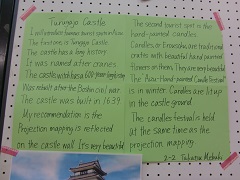 Tsuruga Castle
I will introduce famous tourist spots in Aizu.
The first one is Tsuruga Castle.
The castle has a long history.
It was named after cranes.
The castle with has a 600 year long story
Was rebuilt after the Boshin civil war.
The castle was built in 1639.
My recommendation is the
Projection mapping is reflected
on the castle wall. It's very beautiful
The second tourist spot is the
hand-painted candles.
Candles or Erosoku are traditional
crafts with beautiful hand painted
flowers on them. They are very beautiful
The Aizu-Hand-painted Candle Festival
is in winter. Candles are lit up
in the castle ground.
The candles festival is held
at the same time as the
projection mapping.
2-2